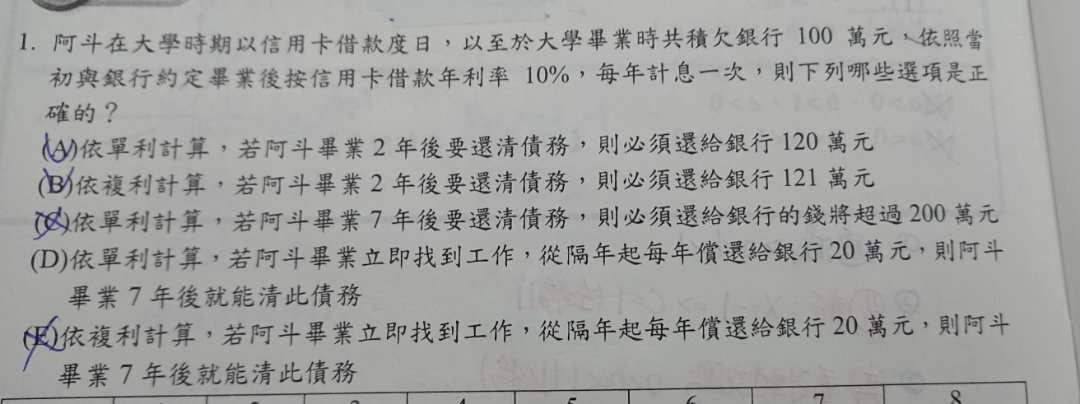 1. 阿斗在大學時期以信用卡借款度日，以至於大學畢業時共積欠銀行 100 萬元，依照當
初與銀行約定畢業後按信用卡借款年利率 10%，每年計息一次，則下列哪些選項是正
確的？
(A)依單利計算，若阿斗畢業 2 年後要還清債務，則必須還給銀行 120 萬元
(B)依複利計算，若阿斗畢業 2 年後要還清債務，則必須還給銀行 121 萬元
(C)依單利計算，若阿斗畢業 7 年後要還清債務，則必須還給銀行的錢將超過 200 萬元
(D)依單利計算，若阿斗畢業立即找到工作，從隔年起每年償還給銀行 20 萬元，則阿斗
畢業 7 年後就能清此債務
(E)依複利計算，若阿斗畢業立即找到工作，從隔年起每年償還給銀行 20 萬元，則阿斗
畢業 7 年後就能清此債務
7 8